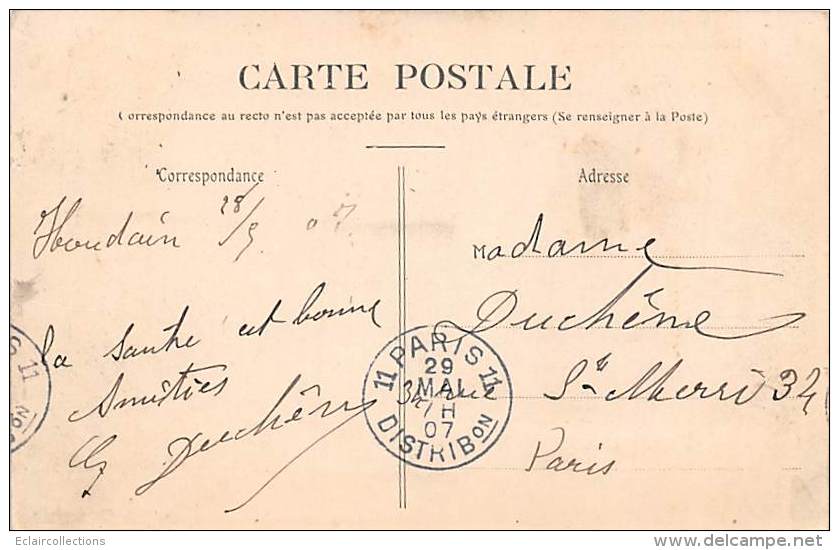 CARTE POSTALE
Correspondance au recto n'est pas acceptée par tous les pays étrangers (Se renseigner à la Poste)
Correspondance
Houdain 28/5 07.
la santé est bonne
Amitiés
Duchêne
Adresse
Madame
Duchêne
34 rue St Merri 34
Paris
11 PARIS 11
29
MAI
7H
07
DISTRIBON
11
Eclaircollections
delcampe.net